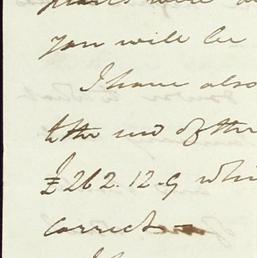 you will be
I have also
to the end of the
£262.12.9 whi
correct –